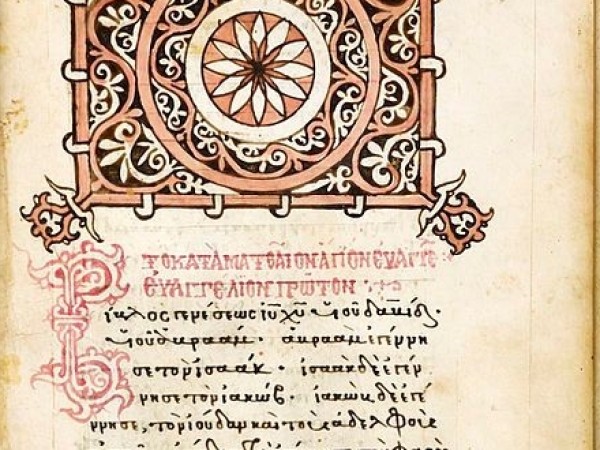 ΤΟ ΚΑΤΑ ΜΑΤΘΑΙΟΝ ΑΓΙΟΝ ΕΥΑΓΓΕ
ΕΥΑΓΓΕΛΙΟΝ ΠΡΩΤΟΝ
Βίβλος γενέσεως ἰυ χυ υἱοῦ δαυίδ·
υἱοῦ ἀβραάμ· ἀβραὰμ ἐγέννη
σε τὸν ἰσαάκ· ἰσαὰκ δὲ ἐγέν
νησε τὸν ἰακώβ· ἰακὼβ δὲ ἐγέ
ννησε, τὸν ἰούδαν καὶ τοὺς ἀδελφοὺς